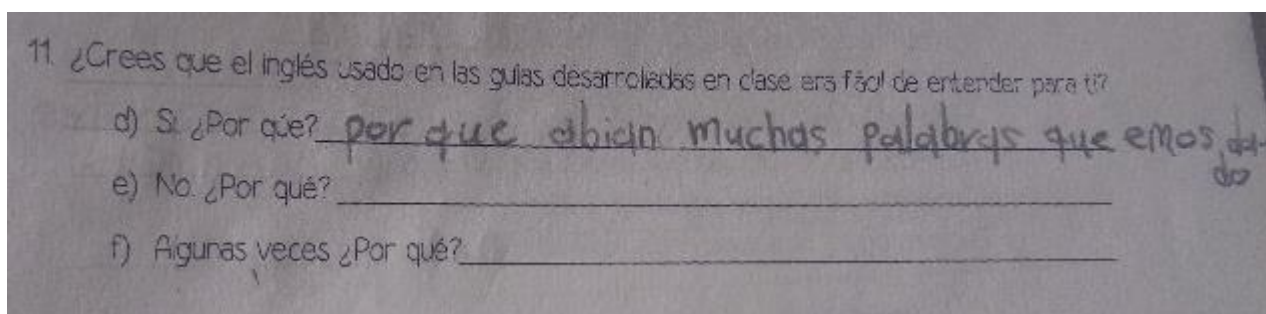 11. ¿Crees que el inglés usado en las guías desarrolladas en clase era fácil de entender para ti?
d) Si. ¿Por qúe? por que abian muchas palabras que emos da-
do
e) No. ¿Por qué?
f) Algunas veces ¿Por qué?